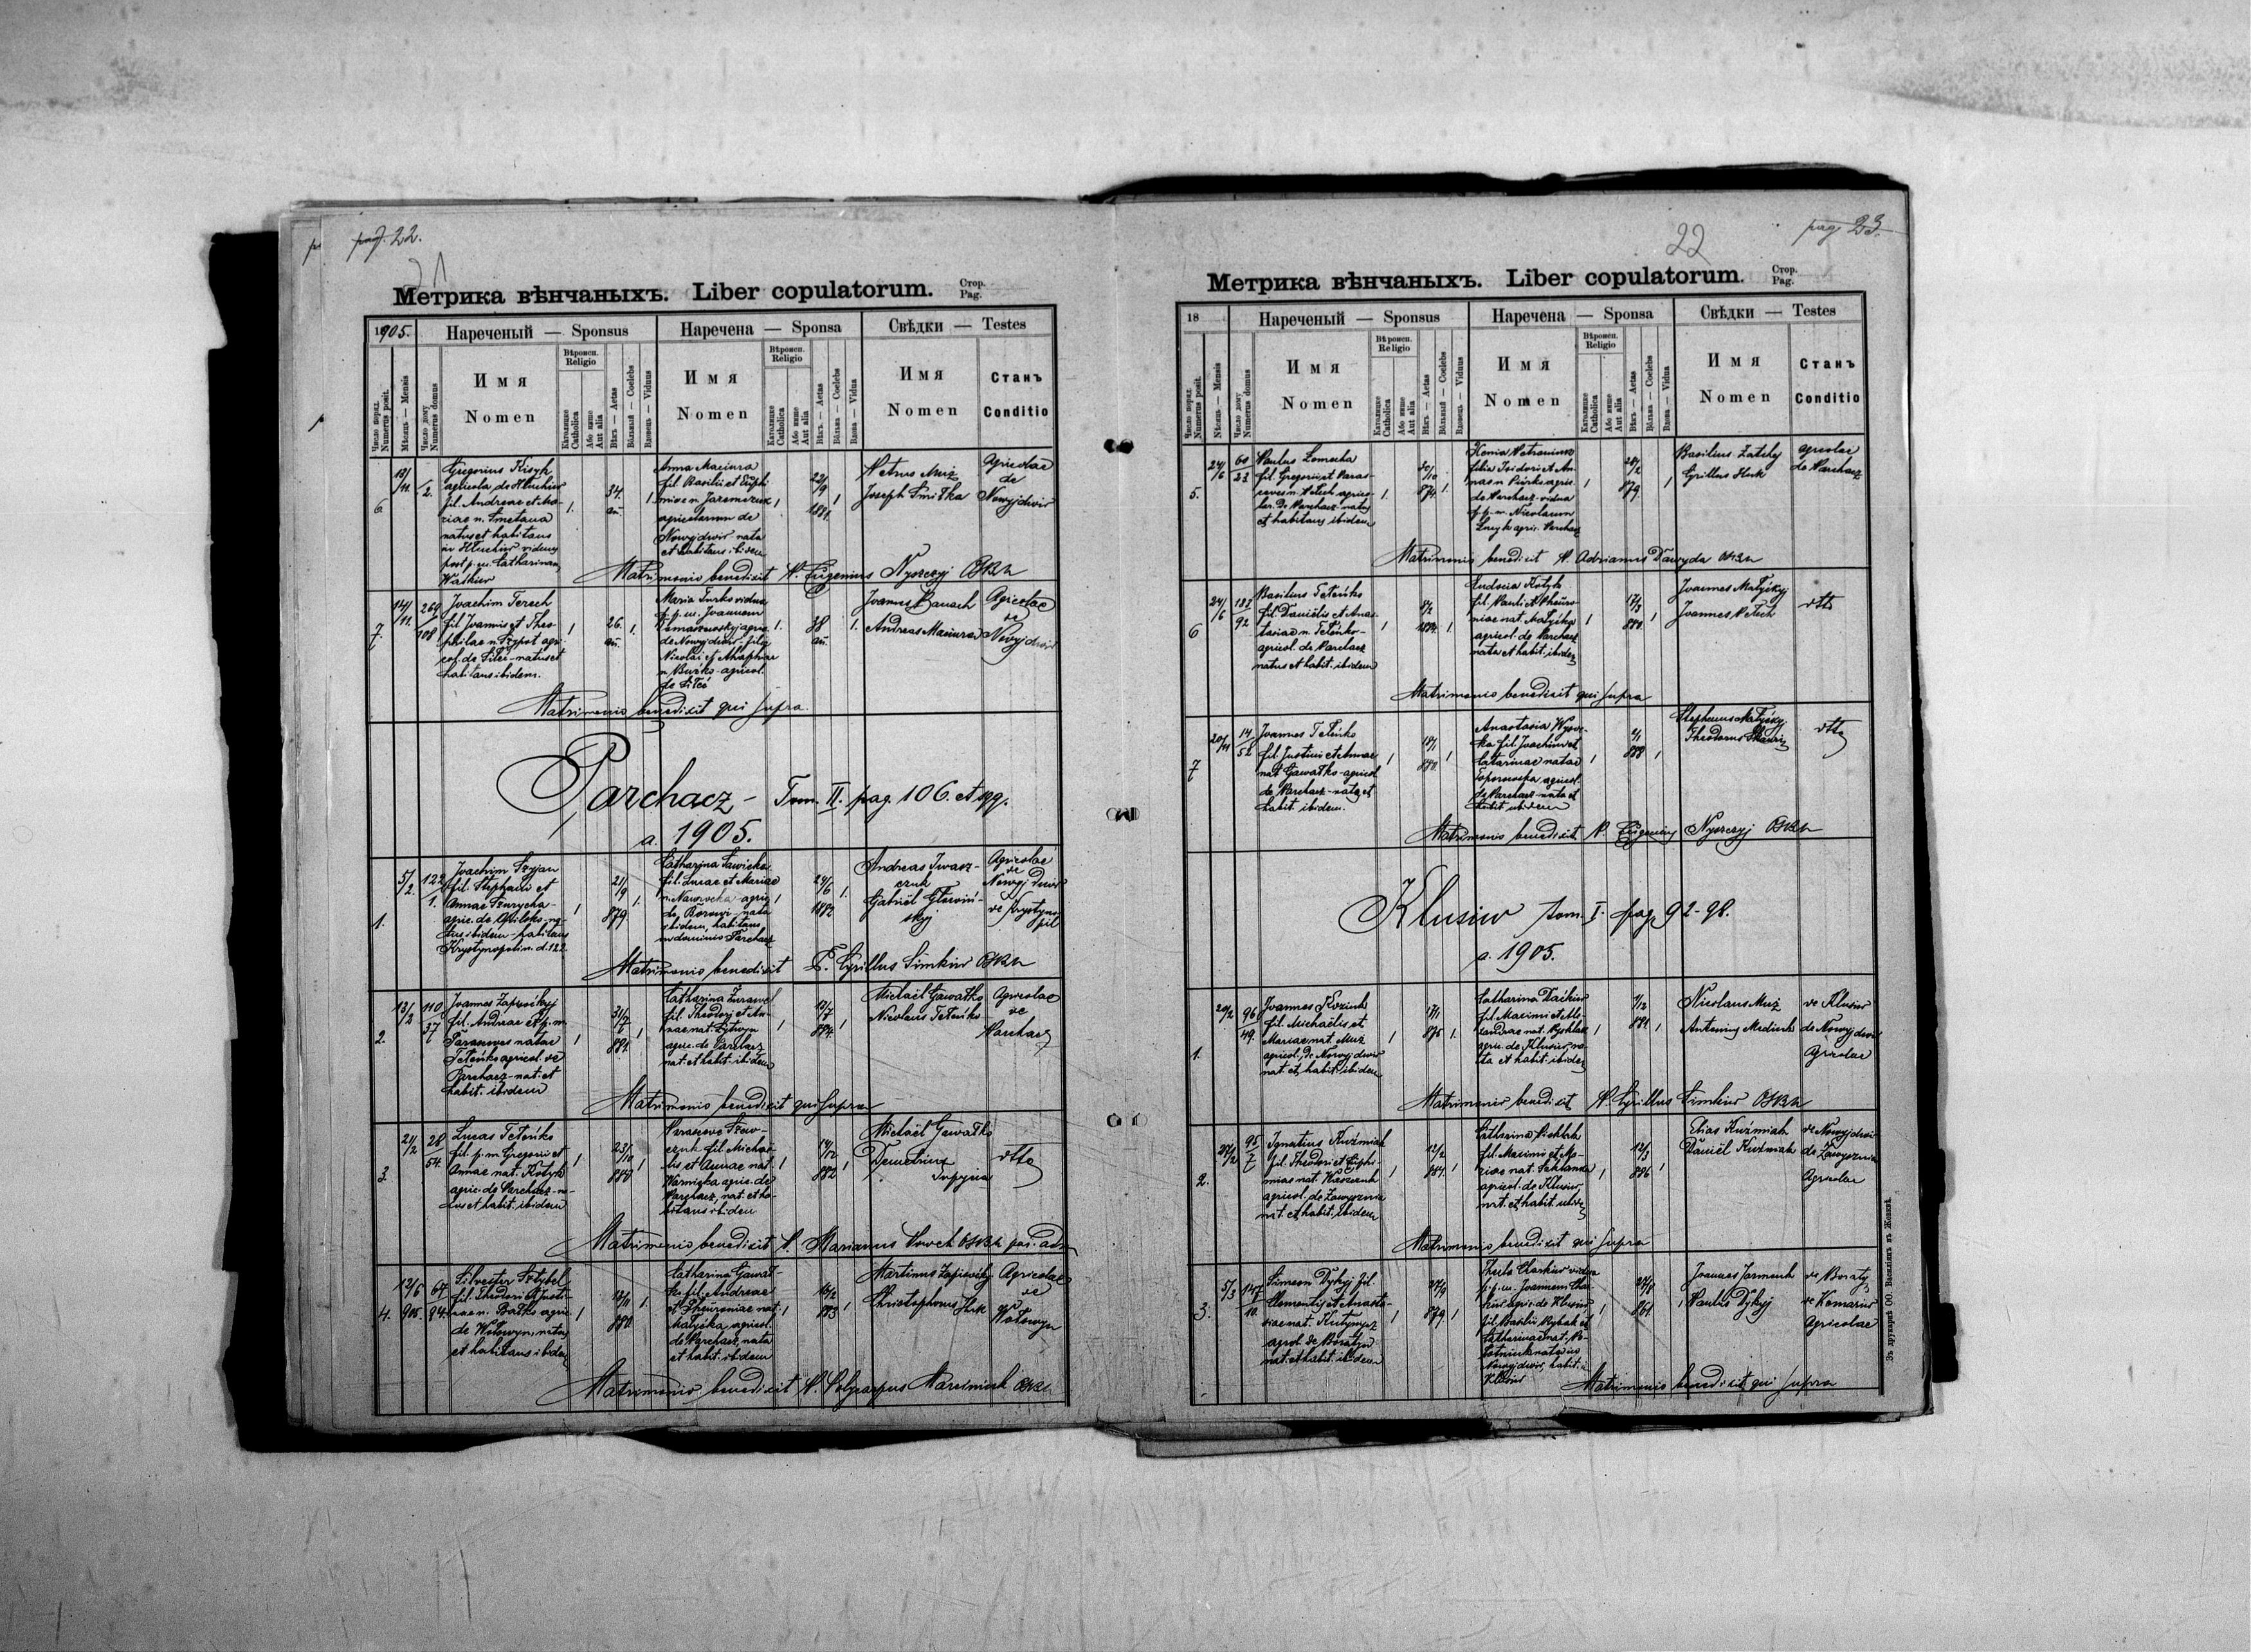 pag. 22.
21
Метрика вѣнчаныхъ. Liber copulatorum. Стор. Pag.
1905. Нареченый — Sponsus Наречена — Sponsa Свѣдки — Testes
Число поряд. Numerus posit.
Мѣсяць — Mensis
Число дому Numerus domus
Имя Nomen
Вѣроисп. Religio
Католицке Catholica
Або инше Aut alia
Вѣкъ — Aetas
Вôльный — Coelebs
Вдовець — Viduus
Имя Nomen
Вѣроисп. Religio
Католицке Catholica
Або инше Aut alia
Вѣкъ — Aetas
Вôльна — Coelebs
Вдова — Vidua
Имя Nomen
Станъ Conditio
6 13/11 2.
Gregorius Kisyk
agricola de Hluchiw
fil. Andreae et Ma-
riae n. Smetana
natus et habitans
in Hluchiw viduus
post p. m. Catharinam
Waskiw
1. 34. an. 1
Anna Maciura
fil. Basilii et Euphi-
miae n. Jaremczuk
agricolarum de
Nowyjdwir nata
et habitans ibidem
1 22/9 1881. 1
Petrus Muż
Joseph Smitka
Agricolae
de
Nowyjdwir
Matrimonio benedixit P. Eugenius Nyszczyj OSBM
7. 14/11. 260/108
Joachim Terech
fil. Joannis et Theo-
philae n. Szypot agri-
col. de Silec - natus et
habitans ibidem.
1 26. an. 1.
Maria Turko vidua
p. p. m. Joannem
Tomaszewskyj agric.
de Nowyjdwir - filia
Nicolai et Ahaphiae
n. Burko - agricol.
de Silec
1. 38 an. 1.
Joannes Banach
Andreas Maciura
Agricolae
de
Nowyjdwir
Matrimonio benedixit qui supra.
Parchacz - Tom. II. pag. 106. et sqq.
a. 1905.
1. 5/2. 122/1.
Joachim Szyjan
fil. Stephani et
Annae Szurycha -
agric. de
tus ibidem - habitans
Krystynopoli n. d. 122
1 21/9 879 1.
Catharina Sawicka
fil. Lucae et Mariae
agric.
de Borowe nata
ibidem, habitans
in dominio Parchacz
1 24/6 1882 1.
Andreas Iwasz-
czuk
Gabriël Głowiń-
skyj
Agricolae
de
Nowyj Dwir
de Krystyno-
pil
Matrimonio benedixit P. Cyrillus Simkiw OSBM
2. 13/2 110/37
fil. Andreae et p. m.
Parasceves natae
Teteńko agricol. de
Parchacz - nat. et
habit. ibidem
1 31/7 881. 1
Catharina Żurawel
fil. Theodorj et An-
nae nat. Litwyn
agric. de Parchacz
nat. et habit. ibidem
1 17/7 884. 1
Michaël Gawałko
Nicolaus Teteńko
Agricolae
de
Parchacz
Matrimonio benedixit qui supra
3. 21/2 28/54.
Lucas Teteńko
fil. p. m. Gregorii et
Annae nat. Kotyk
agric. de Parchacz - na-
tus et habit. ibidem
1 23/10 880 1
Parasceve Szew-
czuk fil. Michaë-
lis et Annae nat.
Warnicka agric. de
Parchacz, nat. et ha-
bitans ibidem
1 14/12 882 1
Michaël Gawałko
Demetrius
dtto
Matrimonio benedixit P. Marianus Powch OSBM par. adm
4. 12/6 905. 67/84.
Silvester Sztybel
fil. Theodori et Justi-
nae n. Bałko agric.
de Wolswyn, natus
et habitans ibidem
1 12/11 880 1.
Catharina Gawał-
ko fil. Andreae
et Pheuroniae nat.
Matyćka agricol.
de Parchacz, nata
et habit. ibidem
1 10/2 883 1
Martinus Zapisockyj
Christophorus Huk
Agricolae
de
Wolswyn
Matrimonio benedixit P. Polycarpus Marciniuk OSBM
22
pag 23.
Метрика вѣнчаныхъ. Liber copulatorum. Стор. Pag.
18 Нареченый — Sponsus Наречена — Sponsa Свѣдки — Testes
Число поряд. Numerus posit.
Мѣсяць — Mensis
Число дому Numerus domus
Имя Nomen
Вѣроисп. Religio
Католицке Catholica
Або инше Aut alia
Вѣкъ — Aetas
Вôльный — Coelebs
Вдовець — Viduus
Имя Nomen
Вѣроисп. Religio
Католицке Catholica
Або инше Aut alia
Вѣкъ — Aetas
Вôльна — Coelebs
Вдова — Vidua
Имя Nomen
Станъ Conditio
5. 24/6 60/23
Paulus Lomocha
fil. Gregorii et Paras-
ceves n. Petech agrico-
lar. de Parchacz natus
et habitans ibidem
1. 30/10 874. 1.
Xenia Petronium
filia Isidori et An-
nae n. agric.
de Parchacz vidua
p. p. m. Nicolaum
agric. Parchacz
1 28/2 879. 1
Basilius Zatchej
Cyrillus Huk
agricolae
de Parchacz
Matrimonio benedixit P. Adrianus Dawyda OSBM
6 24/6 187/92
Basilius Teteńko
fil. Daniëlis et Anas-
tasiae n. Teteńko -
agricol. de Parchacz
natus et habit. ibidem
1 8/2 1884. 1
Eudocia Kotyk
fil. Pauli et Pheuro-
niae nat. Matyćka
agricol. de Parchacz
nata et habit. ibidem
1 17/3 881. 1
Joannes Matyckyj
Joannes Petech
dtto
Matrimonio benedixit qui supra
7 20/11 14/52
Joannes Teteńko
fil. Justini et Annae
nat. Gawałko - agricol
de Parchacz - natus et
habit. ibidem.
1 18/1 880. 1
Anastasia Wysoc-
ka fil. Joachimi et
Catarinae natae
Toporowska agricol.
de Parchacz - nata et
habit. ibidem
1 4/1 888 1
Stephanus Matyckyj
Theodorus
dtto
Matrimonio benedixit P. Eugenius Nyszczyj OSBM
Klusiw tom. I. pag 92-98.
a. 1905.
1. 20/2 96/49.
Joannes Kozink
fil. Michaëlis et
Mariae nat. Muż
agricol. de Nowyjdwir
nat. et habit. ibidem
1 17/11 876 1.
Catharina Daćkiw
fil. Maximi et Ale-
xandrae nat. Rychlak
agric. de Klusiw, na-
ta et habit. ibidem
1 7/12 881. 1
Nicolaus Muż
Antonius Mediuk
de Klusiw
de Nowyjdwir
Agricolae
Matrimonio benedixit P. Cyrillus Simkiw OSBM
2. 27/2 95/7
Ignatius Kuźmiak
fil. Theodori et Euphi-
miae nat. Kaszczuk
agricol. de Zawysznia
nat. et habit. ibidem
1 12/2 881. 1
Catharina
fil. Maximi et Ma-
riae nat. Sahlanda
agricol. de Klusiw,
nat. et habit. ibidem
1 12/3 886 1
Elias Kuźmiak
Daniël Kuźmiak
de Nowyjdwir
de Zawysznia
Agricolae
Matrimonio benedixit qui supra
3. 5/3 147/10.
Simeon Dykyj fil.
Clementij et Anasta-
siae nat. Kutynycz
agrol. de Boratyn
nat. et habit. ibidem
1 27/9 879. 1
Thecla Chaskiw vidua
p. p. m. Joannem Cha-
skiw agric. de Klusiw
fil. Basilii Rybak et
Catharinae nat. Po-
lotniuk nata in
Nowyjdwir, habit. in
Klusiw
1 27/8 861. 1
Joannes Jarmuch
Paulus Dykyj
de Boraty
de Komariw
Agricolae
Matrimonio benedixit qui supra
Зъ друкарнѣ ОО. Василіянъ въ Жовквѣ.